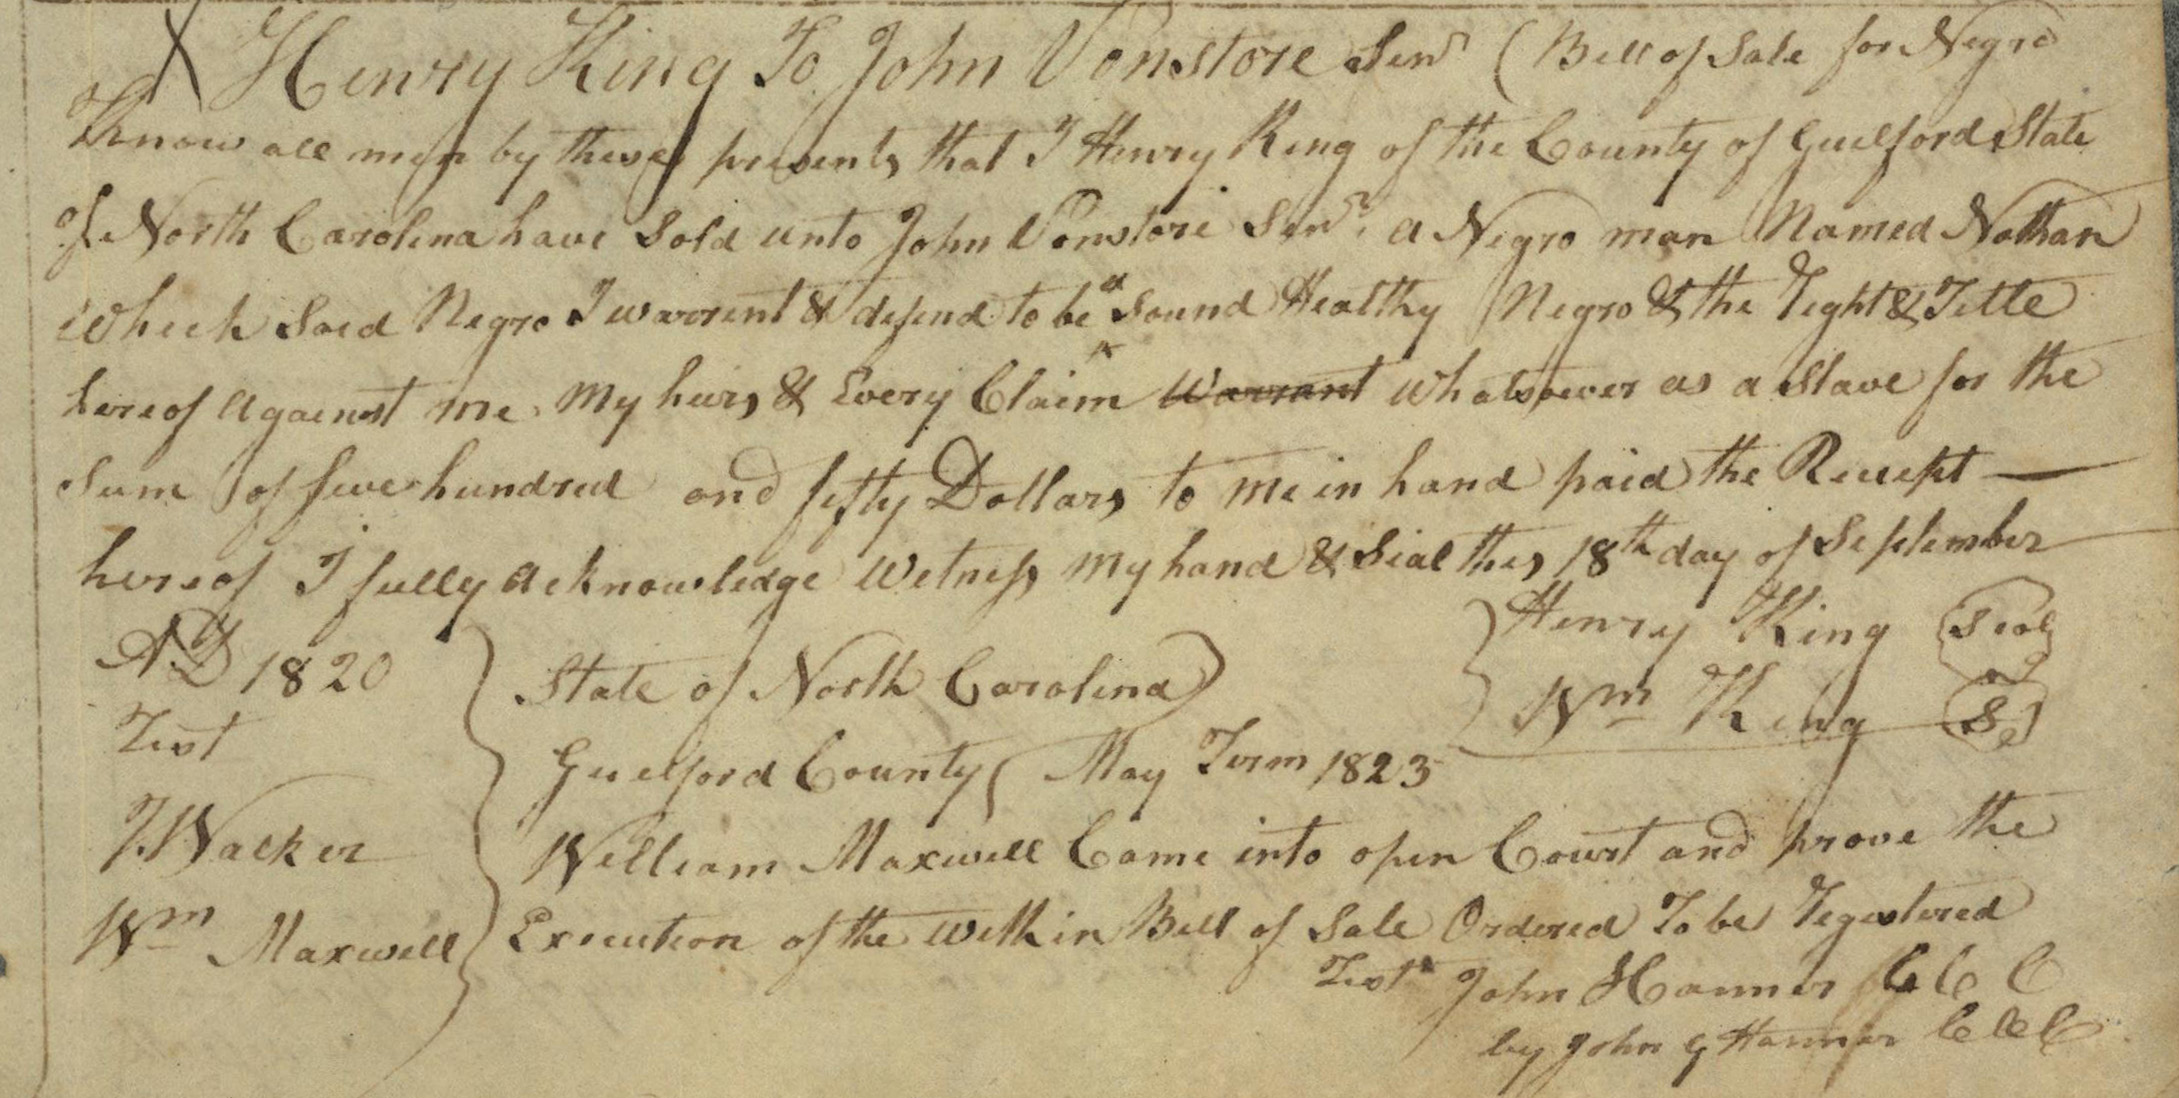 X Henry King To John Vonstore Senr (Bill of Sale for Negro
Know all men by these presents that I Henry King of the County of Guilford State
of North Carolina have Sold unto John Vonstore Senr. a Negro man Named Nathan
which Said Negro I warrent & defend to be a Sound Healthy Negro & the Right & Title
hereof Against me My heirs & Every Claim Warrant Whatsoever as a Slave for the
Sum of five hundred and fifty Dollars to me in hand paid the Receipt —
hereof I fully Acknowledge Witness My hand & Seal this 18th day of September
AD 1820
Henry King Seal
Wm King Sel
Test
State of North Carolina)
Guilford County ( May Term 1823
J Walker
William Maxwell Came into open Court and prove the
Wm Maxwell
Execution of the within Bill of Sale Ordered To be Registered
Test John Hanner C C C
by John G Hanner